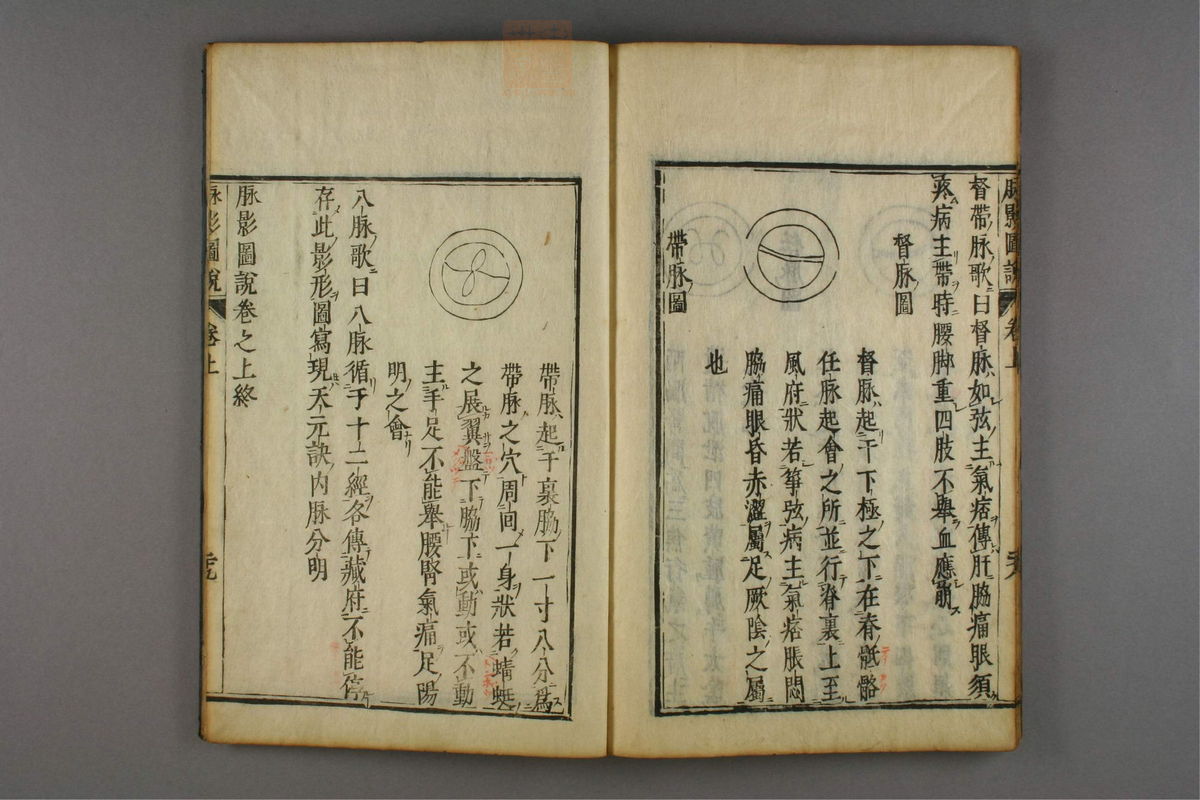 脉影圖說 卷上 二十八
督帶脉歌曰督脉如弦主氣痞傳肝脇痛眼須
疼病主帶時腰脚重四肢不舉血應崩
督脉圖
督脉起于下極之下在脊骶骼
任脉起會之所並行脊裏上至
風府狀若箏弦病主氣痞脹悶
脇痛眼昏赤澀屬足厥陰之屬
也
帶脉圖
帶脉起于裏脇下一寸八分爲
帶脉之穴周间一身狀若蜻蜓
之展翼盤下脇下或動或不動
主手足不能舉腰腎氣痛足陽
明之會
八脉歌曰八脉循于十二經各傳藏府不能停
存此影形圖寫現天元訣内脉分明
脉影圖說卷之上終
脉影圖說 卷上 二十九